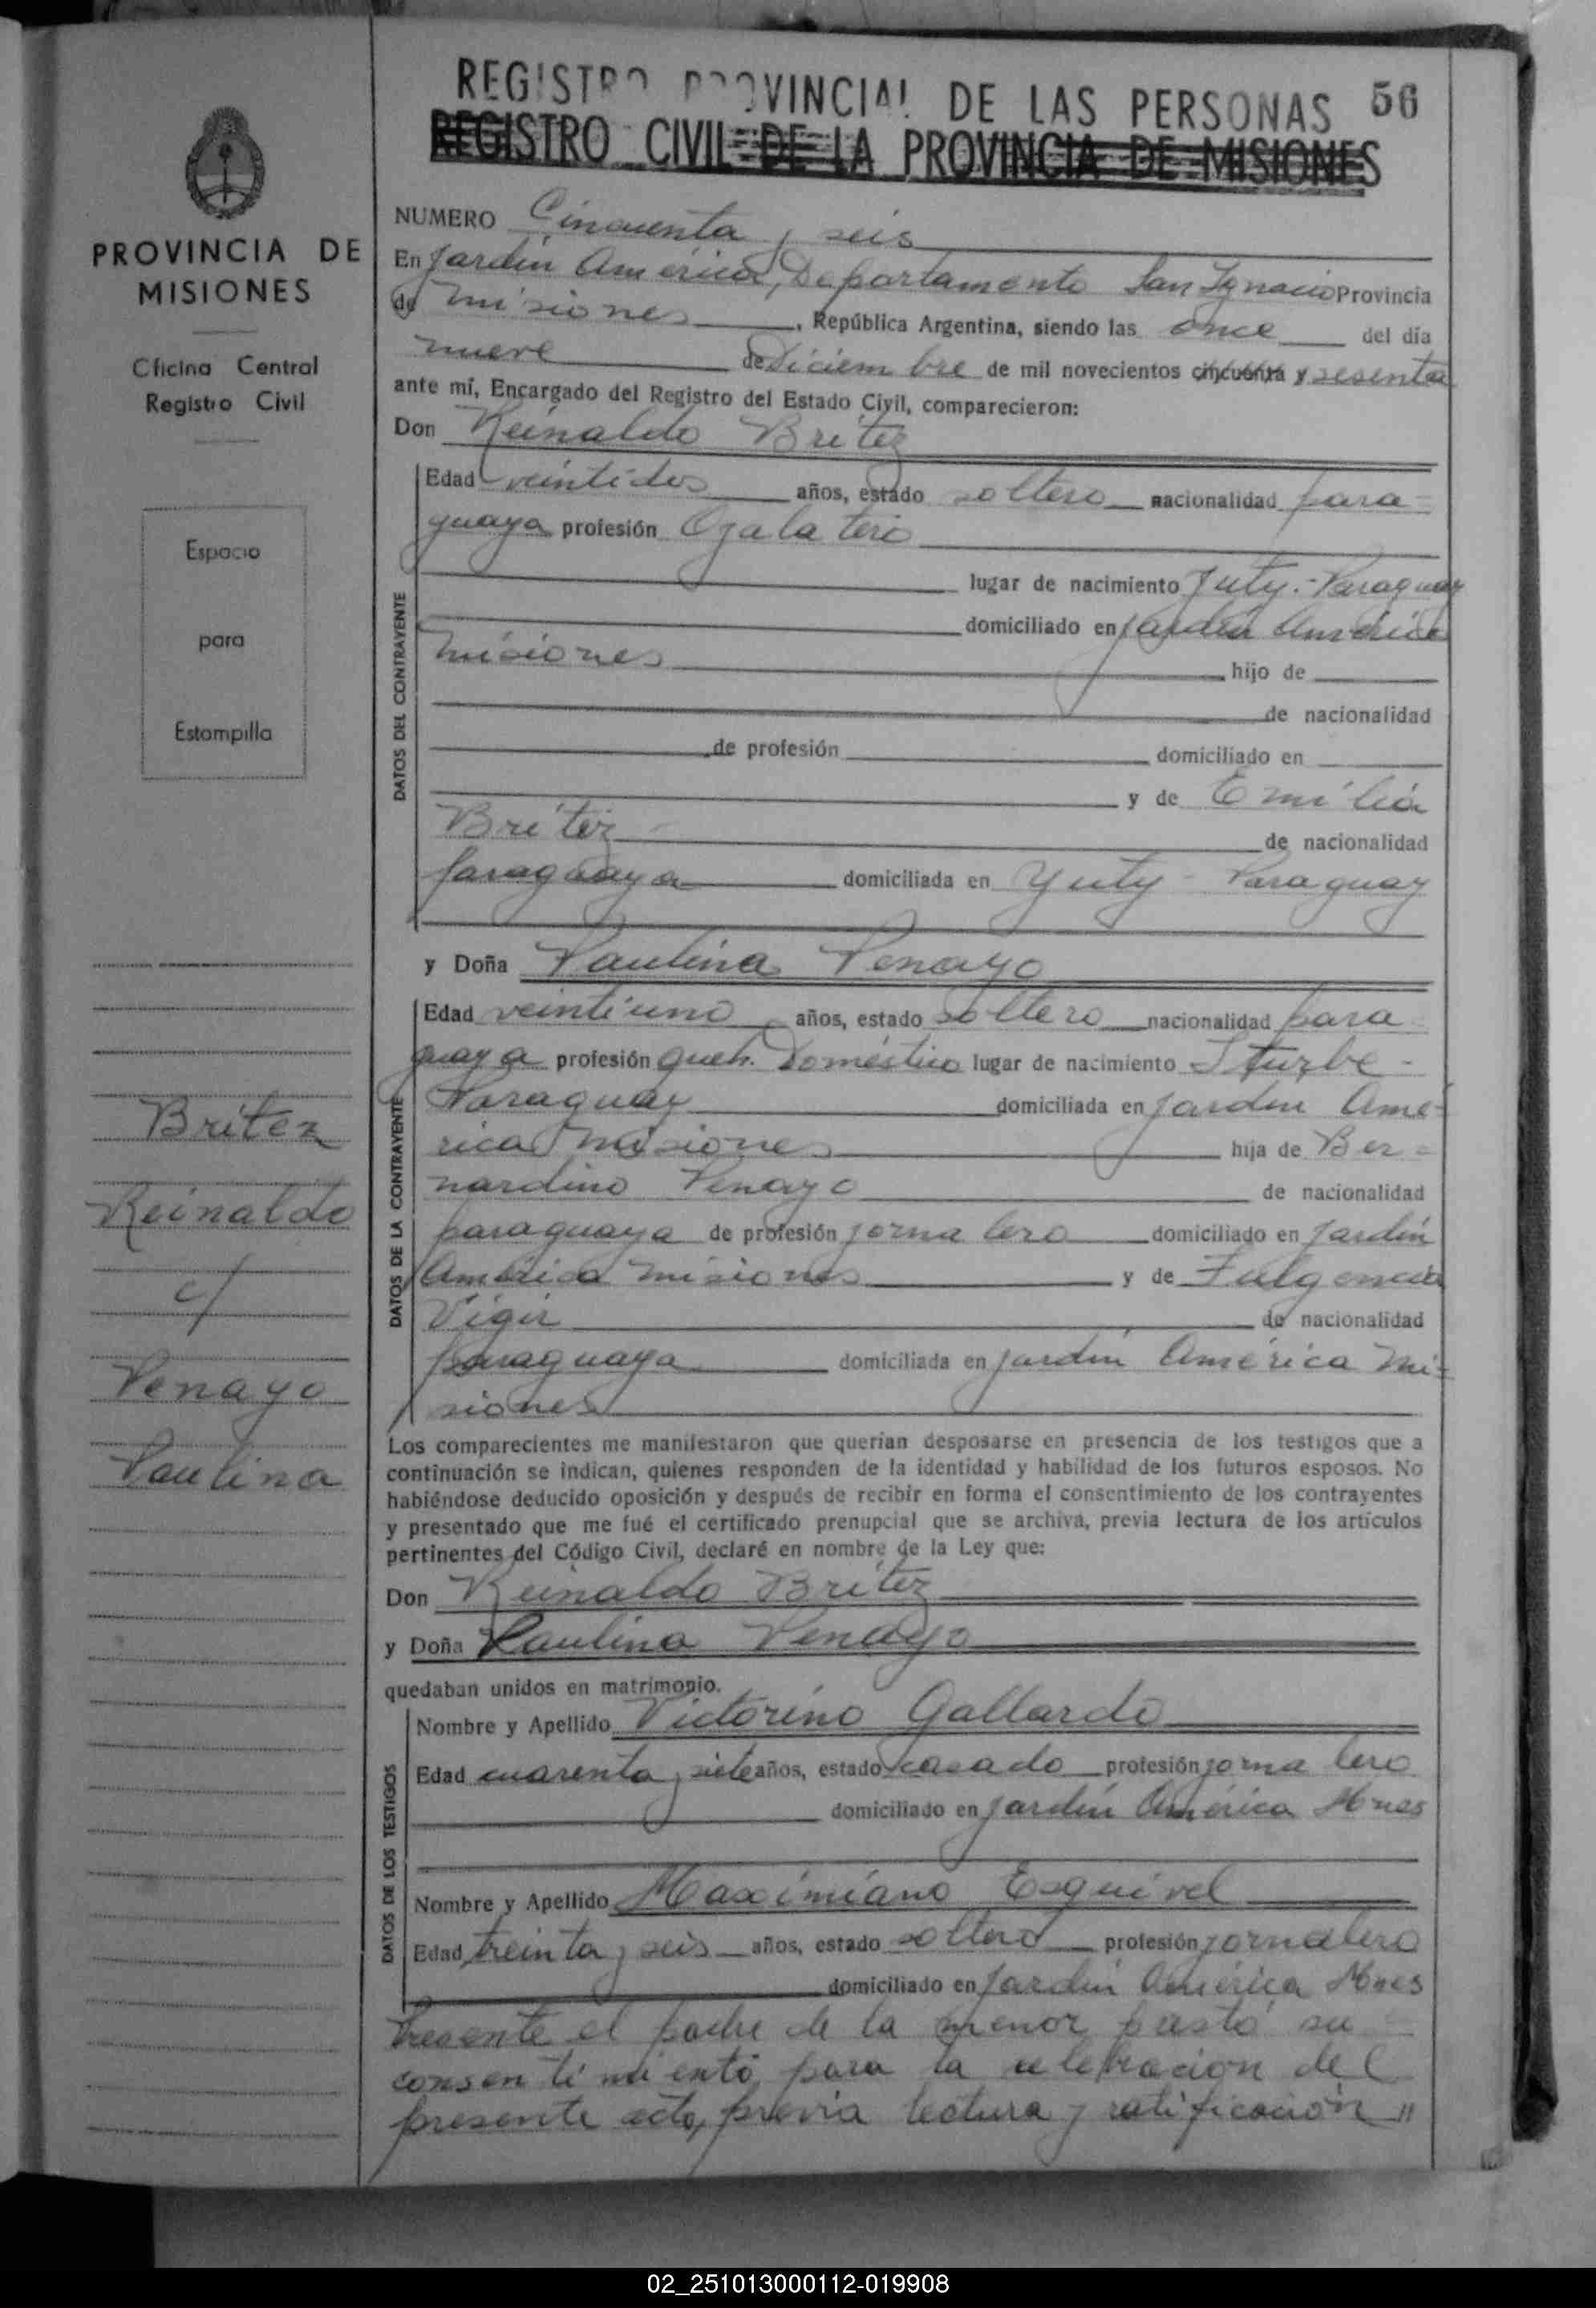 REGISTRO PROVINCIAL DE LAS PERSONAS 56
REGISTRO CIVIL DE LA PROVINCIA DE MISIONES
PROVINCIA DE
MISIONES
Oficina Central
Registro Civil
Espacio
para
Estampilla
Britez
Reinaldo
c/
Penayo
Paulina
NUMERO Cincuenta y seis
En Jardín América, Departamento San Ignacio Provincia
de Misiones, República Argentina, siendo las once del día
nueve de Diciembre de mil novecientos cincuenta y sesenta
ante mí, Encargado del Registro del Estado Civil, comparecieron:
Don Reinaldo Britez
DATOS DEL CONTRAYENTE
Edad veintidos años, estado soltero nacionalidad para-
guaya profesión
lugar de nacimiento Yuty.-Paraguay
domiciliado en Jardín América
Misiones hijo de
de nacionalidad
de profesión domiciliado en
y de Emilia
Britez de nacionalidad
paraguaya domiciliada en Yuty - Paraguay
y Doña Paulina Penayo
DATOS DE LA CONTRAYENTE
Edad veintiuno años, estado soltera nacionalidad para-
guaya profesión queh. Doméstico lugar de nacimiento Iturbe-
Paraguay domiciliada en Jardín Amé-
rica Misiones hija de Ber=
nardino Penayo de nacionalidad
paraguaya de profesión jornalero domiciliado en Jardín
América Misiones y de Fulgencia
de nacionalidad
paraguaya domiciliada en Jardín América Mi=
siones
Los comparecientes me manifestaron que querían desposarse en presencia de los testigos que a
continuación se indican, quienes responden de la identidad y habilidad de los futuros esposos. No
habiéndose deducido oposición y después de recibir en forma el consentimiento de los contrayentes
y presentado que me fué el certificado prenupcial que se archiva, previa lectura de los artículos
pertinentes del Código Civil, declaré en nombre de la Ley que:
Don Reinaldo Britez
y Doña Paulina Penayo
quedaban unidos en matrimonio.
DATOS DE LOS TESTIGOS
Nombre y Apellido Victorino Gallardo
Edad cuarenta y siete años, estado casado profesión jornalero
domiciliado en Jardín América Mnes
Nombre y Apellido Maximiano Esquivel
Edad treinta y seis años, estado soltero profesión jornalero
domiciliado en Jardín América Mnes
Presente el padre de la menor prestó su
consentimiento para la celebración del
presente acto, previa lectura y ratificación "
02_251013000112-019908